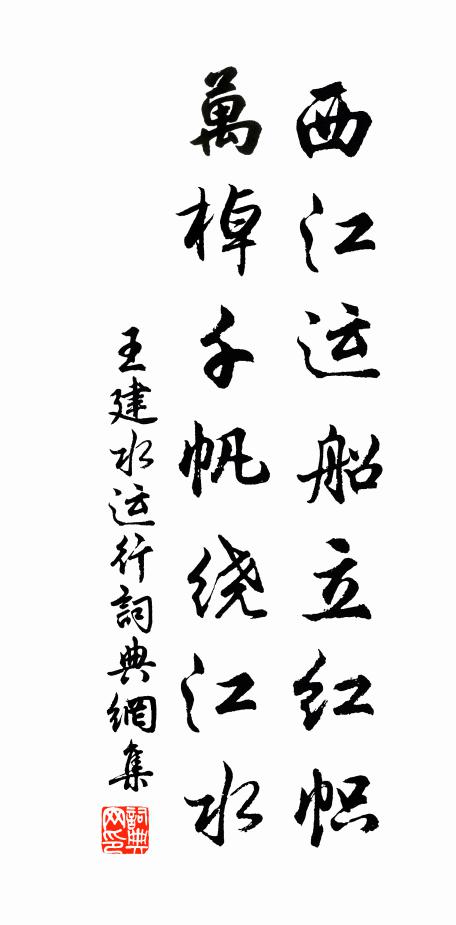 西江运船立红帜
萬棹千帆绕江水
王建水运行詞典網集
詞典网印